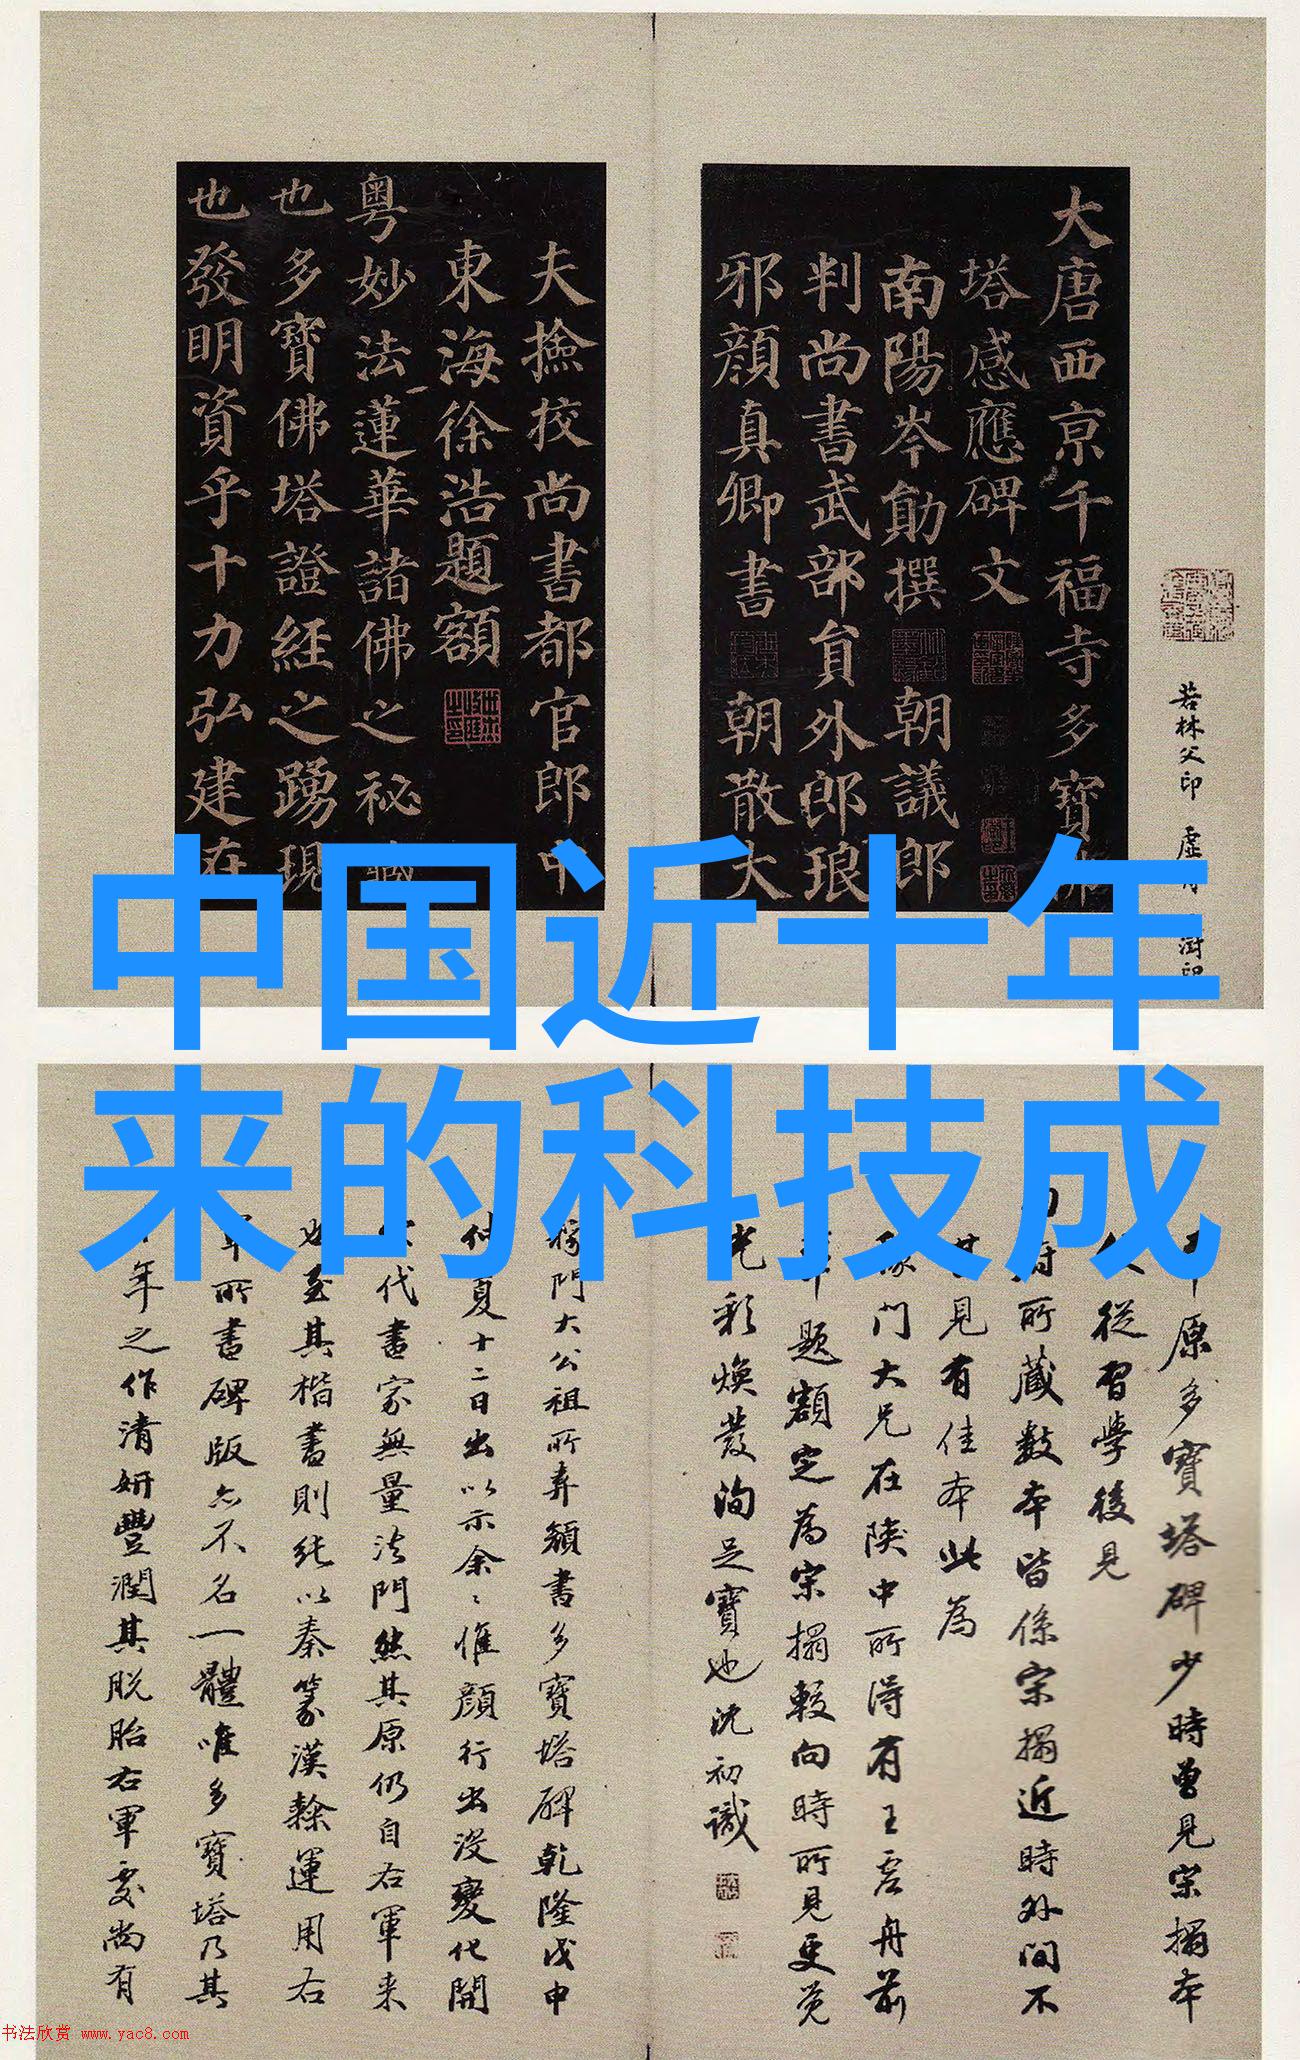 大唐西京千福寺多寶佛
塔感應碑文
南陽岑勛撰 朝議郎
判尚書武部員外郎琅
邪顏真卿書 朝散大
夫撿挍尚書都官郎中
東海徐浩題額
粵妙法蓮華諸佛之祕藏
也多寶佛塔證經之踴現
也發明資乎十力弘建在
若林父印 虛舟 澍印
中国近十年
来的科技成
原多寶塔碑少時曾見宋搨本
從習學後見
所藏數本皆係宋搨近時外間不
甘見有佳本此為
門大兄在陝中所得有王虛舟前
題額定為宋搨較向時所見更覺
光彩煥發洵足寶也沈初識
門大公祖所弆顏書多寶塔碑乾隆戊申
仲夏十二日出以示余余惟顏行出沒變化開
代書家無量法門然其原仍自右軍来
也至其楷書則純以秦篆漢隸運用右
軍所書碑版亦不名一體唯多寶塔乃其
年之作清妍豐潤其脫胎右軍處尚有
书法欣赏 www.yac8.com